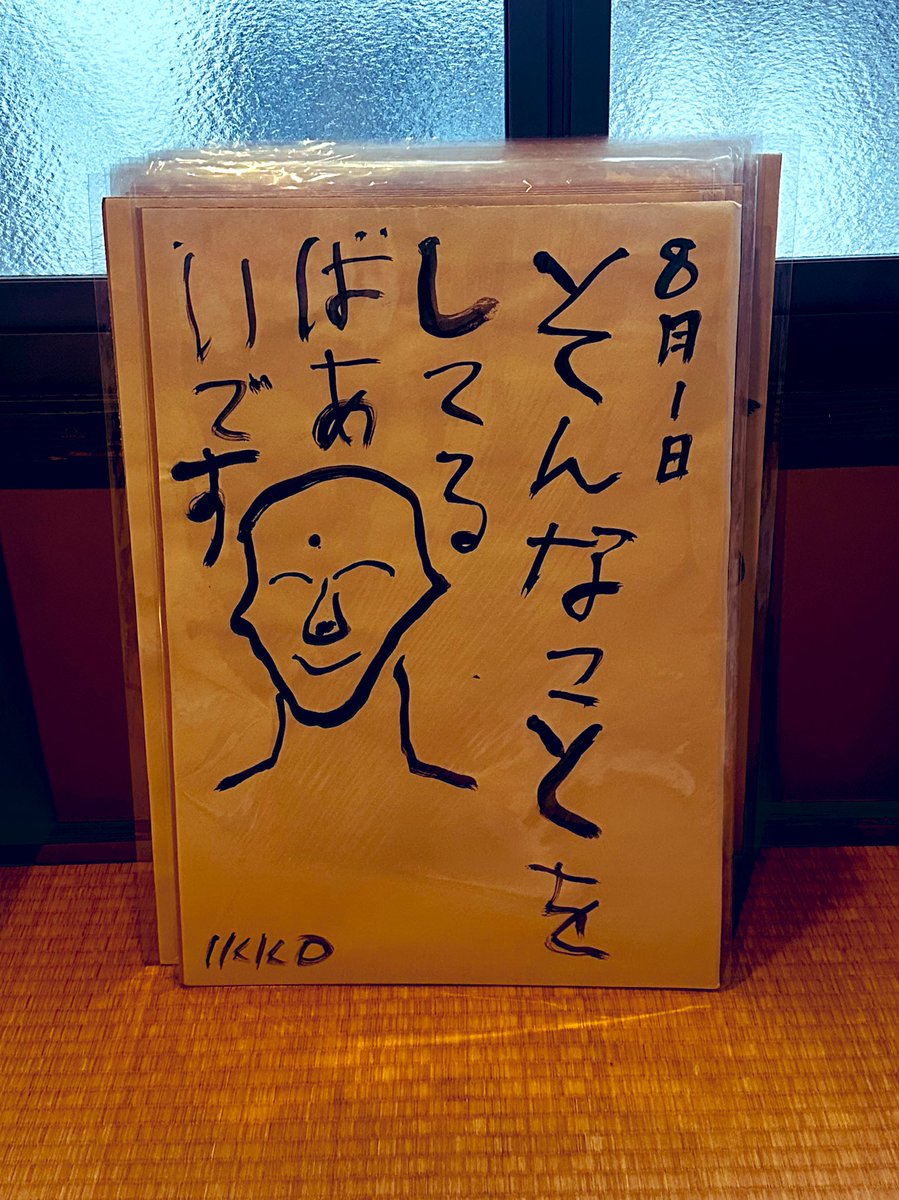 8月1日
そんなことを
してる
ばあ
いです
IKKO